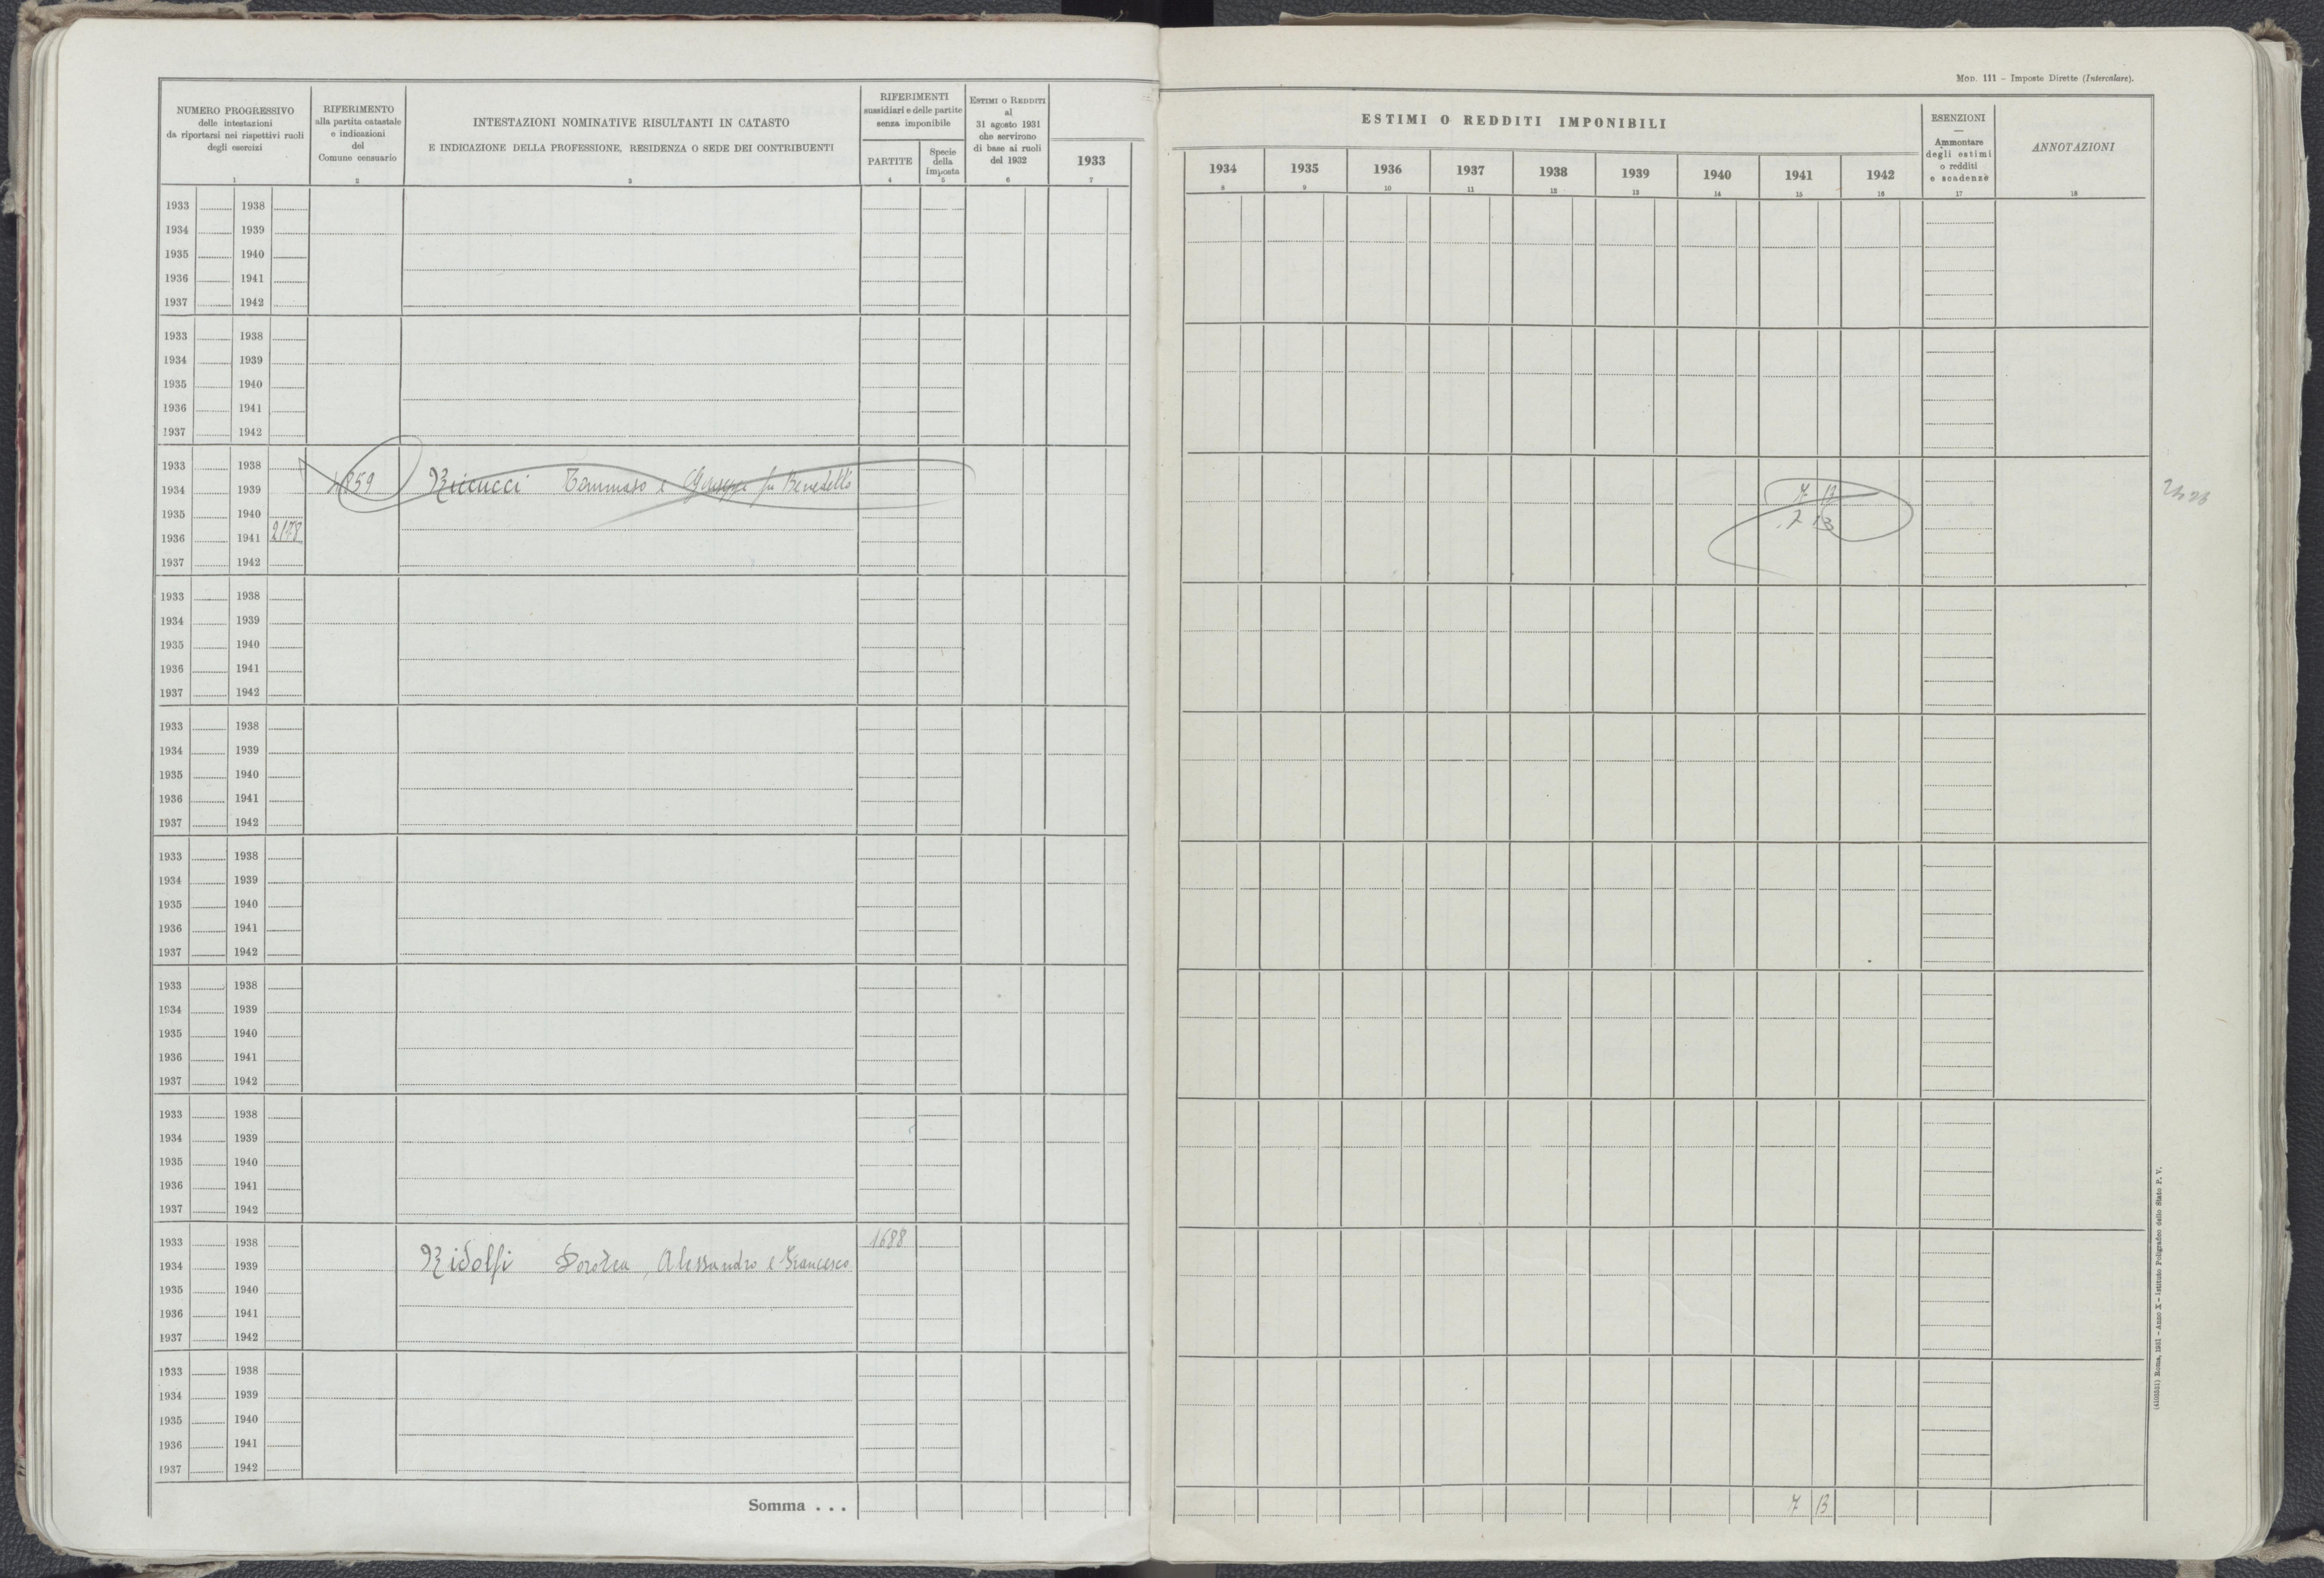 Mod. 111 - Imposte Dirette (Intercalare).
NUMERO PROGRESSIVO
delle intestazioni
da riportarsi nei rispettivi ruoli
degli esercizi
1
RIFERIMENTO
alla partita catastale
e indicazioni
del
Comune censuario
2
INTESTAZIONI NOMINATIVE RISULTANTI IN CATASTO
E INDICAZIONE DELLA PROFESSIONE, RESIDENZA O SEDE DEI CONTRIBUENTI
3
RIFERIMENTI
sussidiari e delle partite
senza imponibile
PARTITE
4
Specie
della
imposta
5
ESTIMI O REDDITI
al
31 agosto 1931
che servirono
di base ai ruoli
del 1932
6
1933
7
ESTIMI O REDDITI IMPONIBILI
1934 1935 1936 1937 1938 1939 1940 1941 1942
8 9 10 11 12 13 14 15 16
ESENZIONI
—
Ammontare
degli estimi
o redditi
e scadenze
17
ANNOTAZIONI
18
1933 1938
1934 1939
1935 1940
1936 1941
1937 1942
1933 1938
1934 1939
1935 1940
1936 1941
1937 1942
1933 1938
1934 1939 Riccucci Tommaso e Giuseppe fu Benedetto 7 13
1935 1940 7 13
1936 1941 2178
1937 1942
1933 1938
1934 1939
1935 1940
1936 1941
1937 1942
1933 1938
1934 1939
1935 1940
1936 1941
1937 1942
1933 1938
1934 1939
1935 1940
1936 1941
1937 1942
1933 1938
1934 1939
1935 1940
1936 1941
1937 1942
1933 1938
1934 1939
1935 1940
1936 1941
1937 1942
1933 1938 1688
1934 1939 Ridolfi Dorotea, Alessandro e Francesco
1935 1940
1936 1941
1937 1942
1933 1938
1934 1939
1935 1940
1936 1941
1937 1942
Somma . . . 7 13
(4100351) Roma, 1931 - Anno X - Istituto Poligrafico dello Stato P. V.